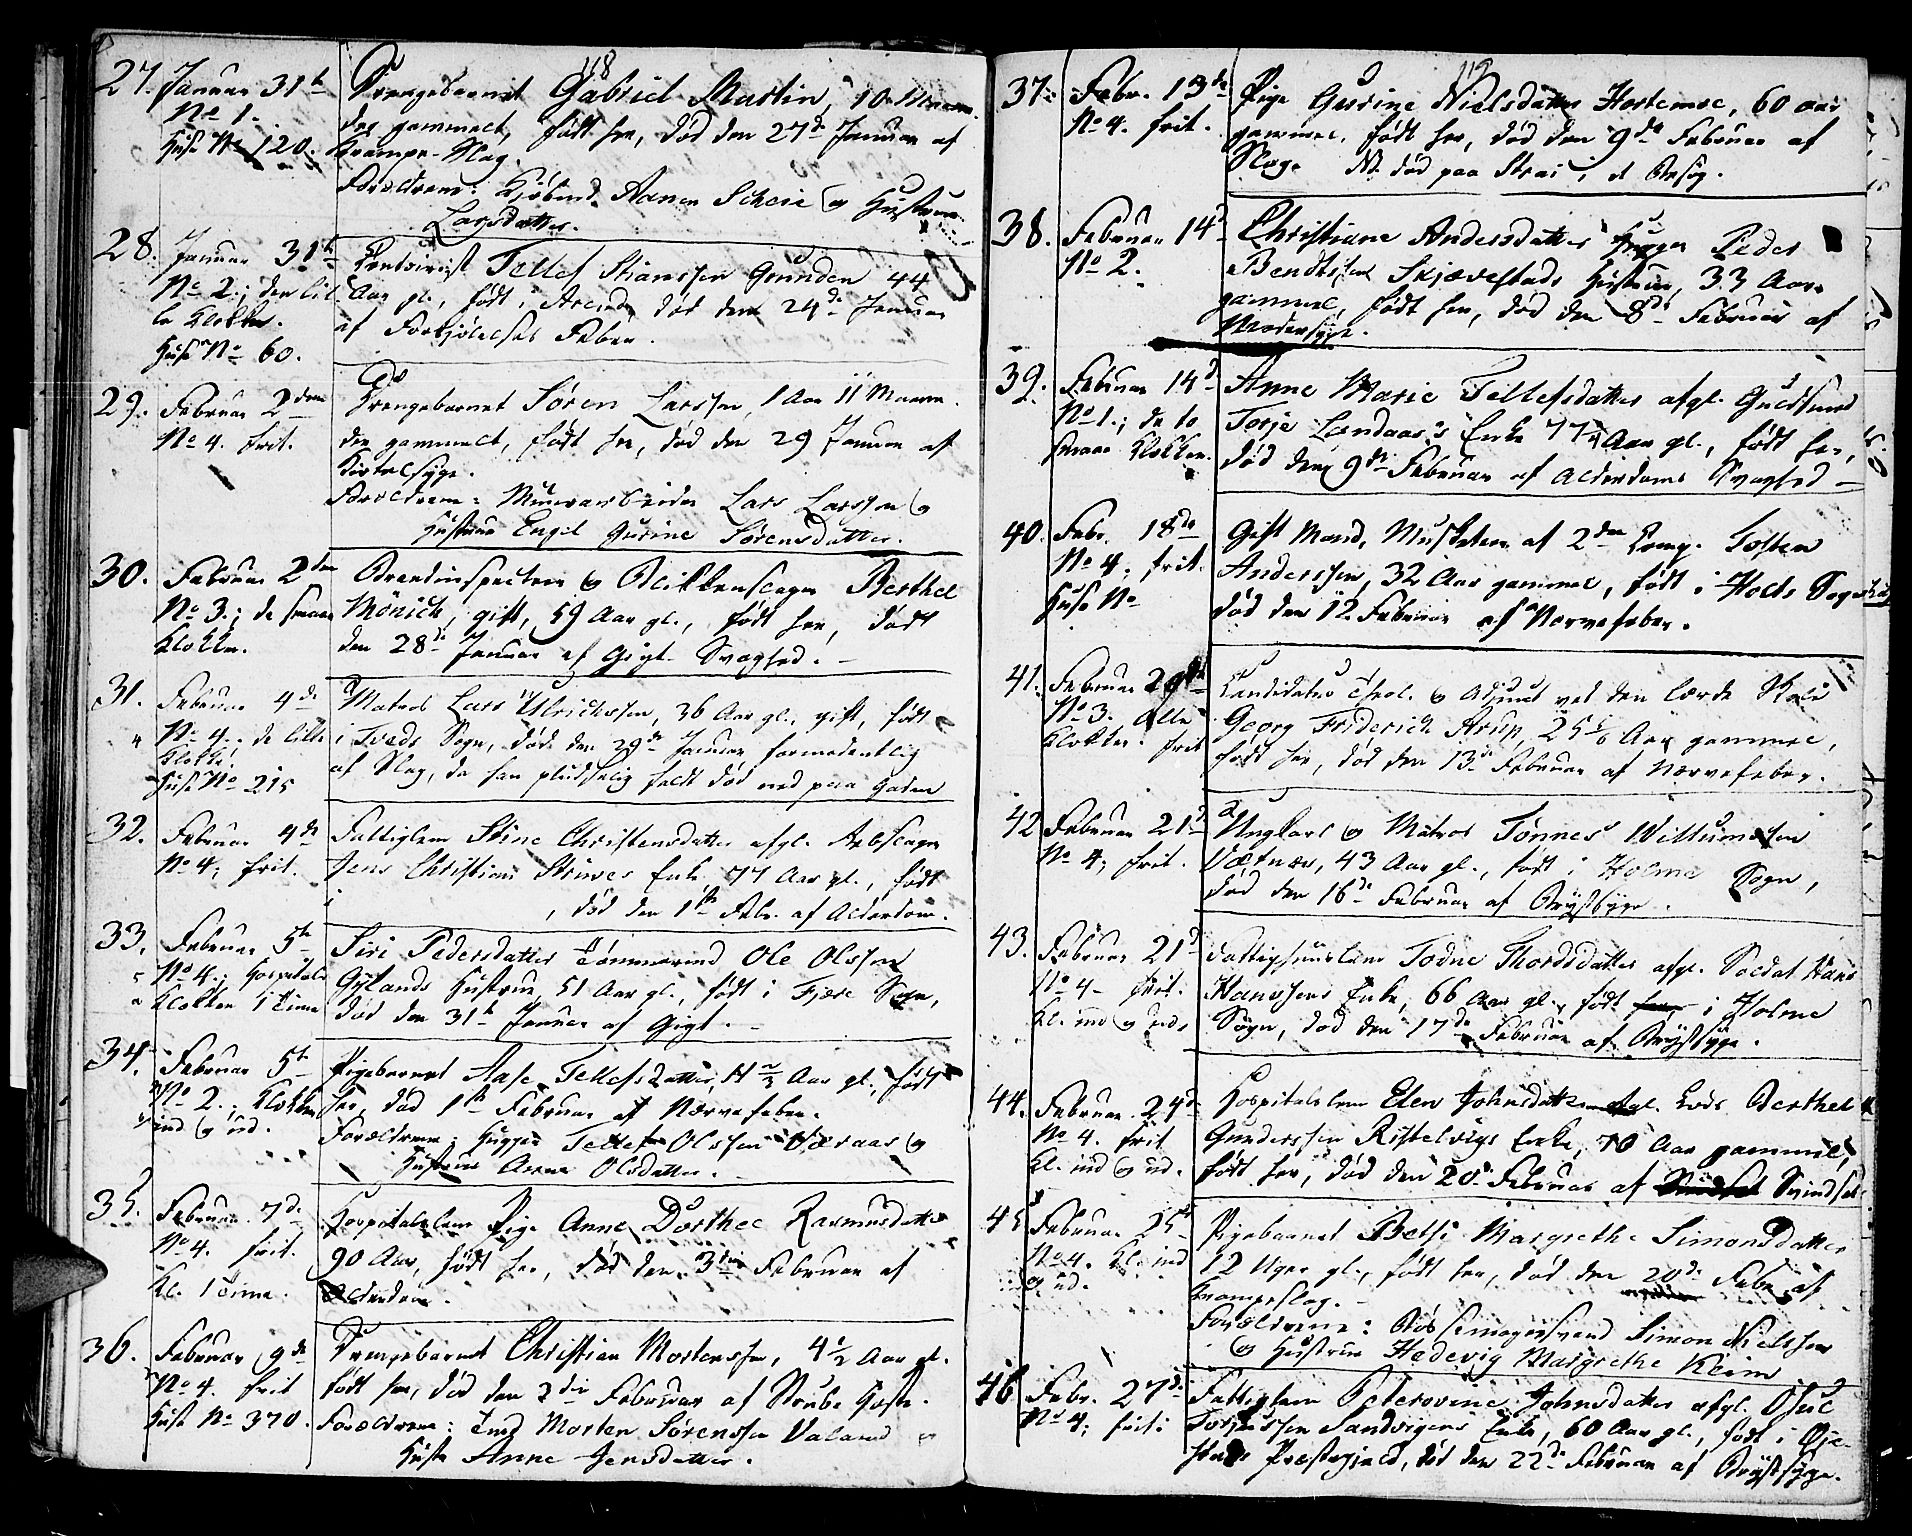 118
27. Januar 31te Drengebarnet Gabriel Martin, 10 Maane-
No 1. der gammelt, født her, død den 27de Januar af
Huse No 120. Krampe-Slag.
Forældrene: Aanen Scheie og Hustrue
Larsdatter.
28. Januar 31te Tellef Stianssen Grunden 44
No 2; den lil- Aar gl., født i Arendal, død den 24de Januar
le Klokke. af Forkjølelses Feber.
Huse No 60.
29. Februar 2den Drengebarnet Søren Larssen, 1 Aar 11 Maane-
No 4. frit. der gammelt, født her, død den 29 Januar af
Kirtelsyge.
Forældrene: Muurarbeider Lars Larssen og
Hustrue Engel Gurine Sørensdatter.
30. Februar 2den Brandinspecteur og Blikkenslager Berthel
No 3; de smaae Mönich, gift, 59 Aar gl., født her, død
Klokker. den 28de Januar af Gigt-Svaghed.
31. Februar 4de Matros Lars Ulrichssen, 36 Aar gl., gift, født
No 4; de lille i Tveds Sogn, døde den 29de Januar formodentlig
Klokke. af Slag, da han pludselig faldt død ned paa Gaden
Huse No 215
32. Februar 4de Fattiglem Stine Christensdatter afgl.
No 4; frit. Jens Christian Struves Enke 77 Aar gl., født
i , død den 1ste Febr. af Alderdom.
33. Februar 5te Siri Pedersdatter Tømmermand Ole Olssen
No 4; Hospitals Gylands Hustrue, 51 Aar gl., født i Fjære Sogn,
Klokken 1 Time død den 31te Januar af Gigt.
34. Februar 5te Pigebarnet Aase Tellefsdatter, Aar gl., født
No 2; Klokken her, død 1ste Februar af Nervefeber.
ind og ud. Forældrene: Hugger Tellef Olssen og
Hustrue Anne Olsdatter.
35. Februar 7de Hospitalslem Pige Anne Dorthee Rasmusdatter
No 4. frit. 90 Aar, født her, død den 3die Februar af
Kl. 1 Time. Alderdom.
36. Februar 9de Drengebarnet Christian Mortenssen, 4½ Aar gl.
No 4. frit født her, død den 3die Februar af Strube Hoste.
Huse No 370. Forældrene: Morten Sørenssen Valand og
Hustr Anne Jensdatter.
119
37. Febr. 13de Pige Gurine Nielsdatter Hortemoe, 60 Aar
No 4. frit. gammel, født her, død den 9de Februar af
Slag. NB død paa Strai i et Besøg.
38. Februar 14d Christiane Andersdatter Hugger Peder
No 2. Bendtssen Skjævestads Hustrue, 33 Aar
gammel, født her, død den 8de Februar af
Modersyge.
39. Februar 14d Anne Marie Tellefsdatter afgl. Guldsmed
No 1; de to Terje Landaas's Enke 77 Aar gl., født her,
smaae Klokker. død den 9de Februar af Alderdoms Svaghed
40. Febr. 18de Gift Mand, Musketeer af 2den Comp. Tosten
No 4; frit. Anderssen, 32 Aar gammel, født i Holts Sogn
Huse No død den 12 Februar af Nervefeber.
41. Februar Candidatus Theol. og Adjunct ved den lærde Skole
No 3. Alle Georg Friderich Arup, Aar gammel,
Klokker. frit født her, død den 13de Februar af Nervefeber.
42 Februar 21d Ungkarl og Matros Tønnes Willumssen
No 4; frit. 43 Aar gl., født i Holme Sogn,
død den 16de Februar af Brystsyge.
43. Februar 21d Fattighuuslem Todne Thordsdatter afgl. Soldat Hans
No 4 frit. Hanssens Enke, 66 Aar gl., født i Holme
Kl. ind og ud. Sogn, død den 17de Februar af Brystsyge.
44. Februar 24de Hospitalslem Elen Johnsdatter afgl. Lods Berthel
No 4. frit Gunderssen Ristelvigs Enke, 70 Aar gammel,
Kl. ind og ud. født her, død den 20de Februar af Svindsot
45 Februar 25t Pigebarnet Betsi Margrethe Simonsdatter
No 4. Kl. ind 12 Uger gl., født her, død den 20de Febr. af
og ud. Krampeslag.
Forældrene: Bødkermagersvend Simon Nielssen
og Hustrue Hedevig Margrethe Klein
46 Febr. 27de Fattiglem Peterovine Johnsdatter afgl. Osul
No 4; frit: Sandvigens Enke, 60 Aar gl., født i Øie-
stads Præstegjeld, død den 22de Februar af Brystsyge.